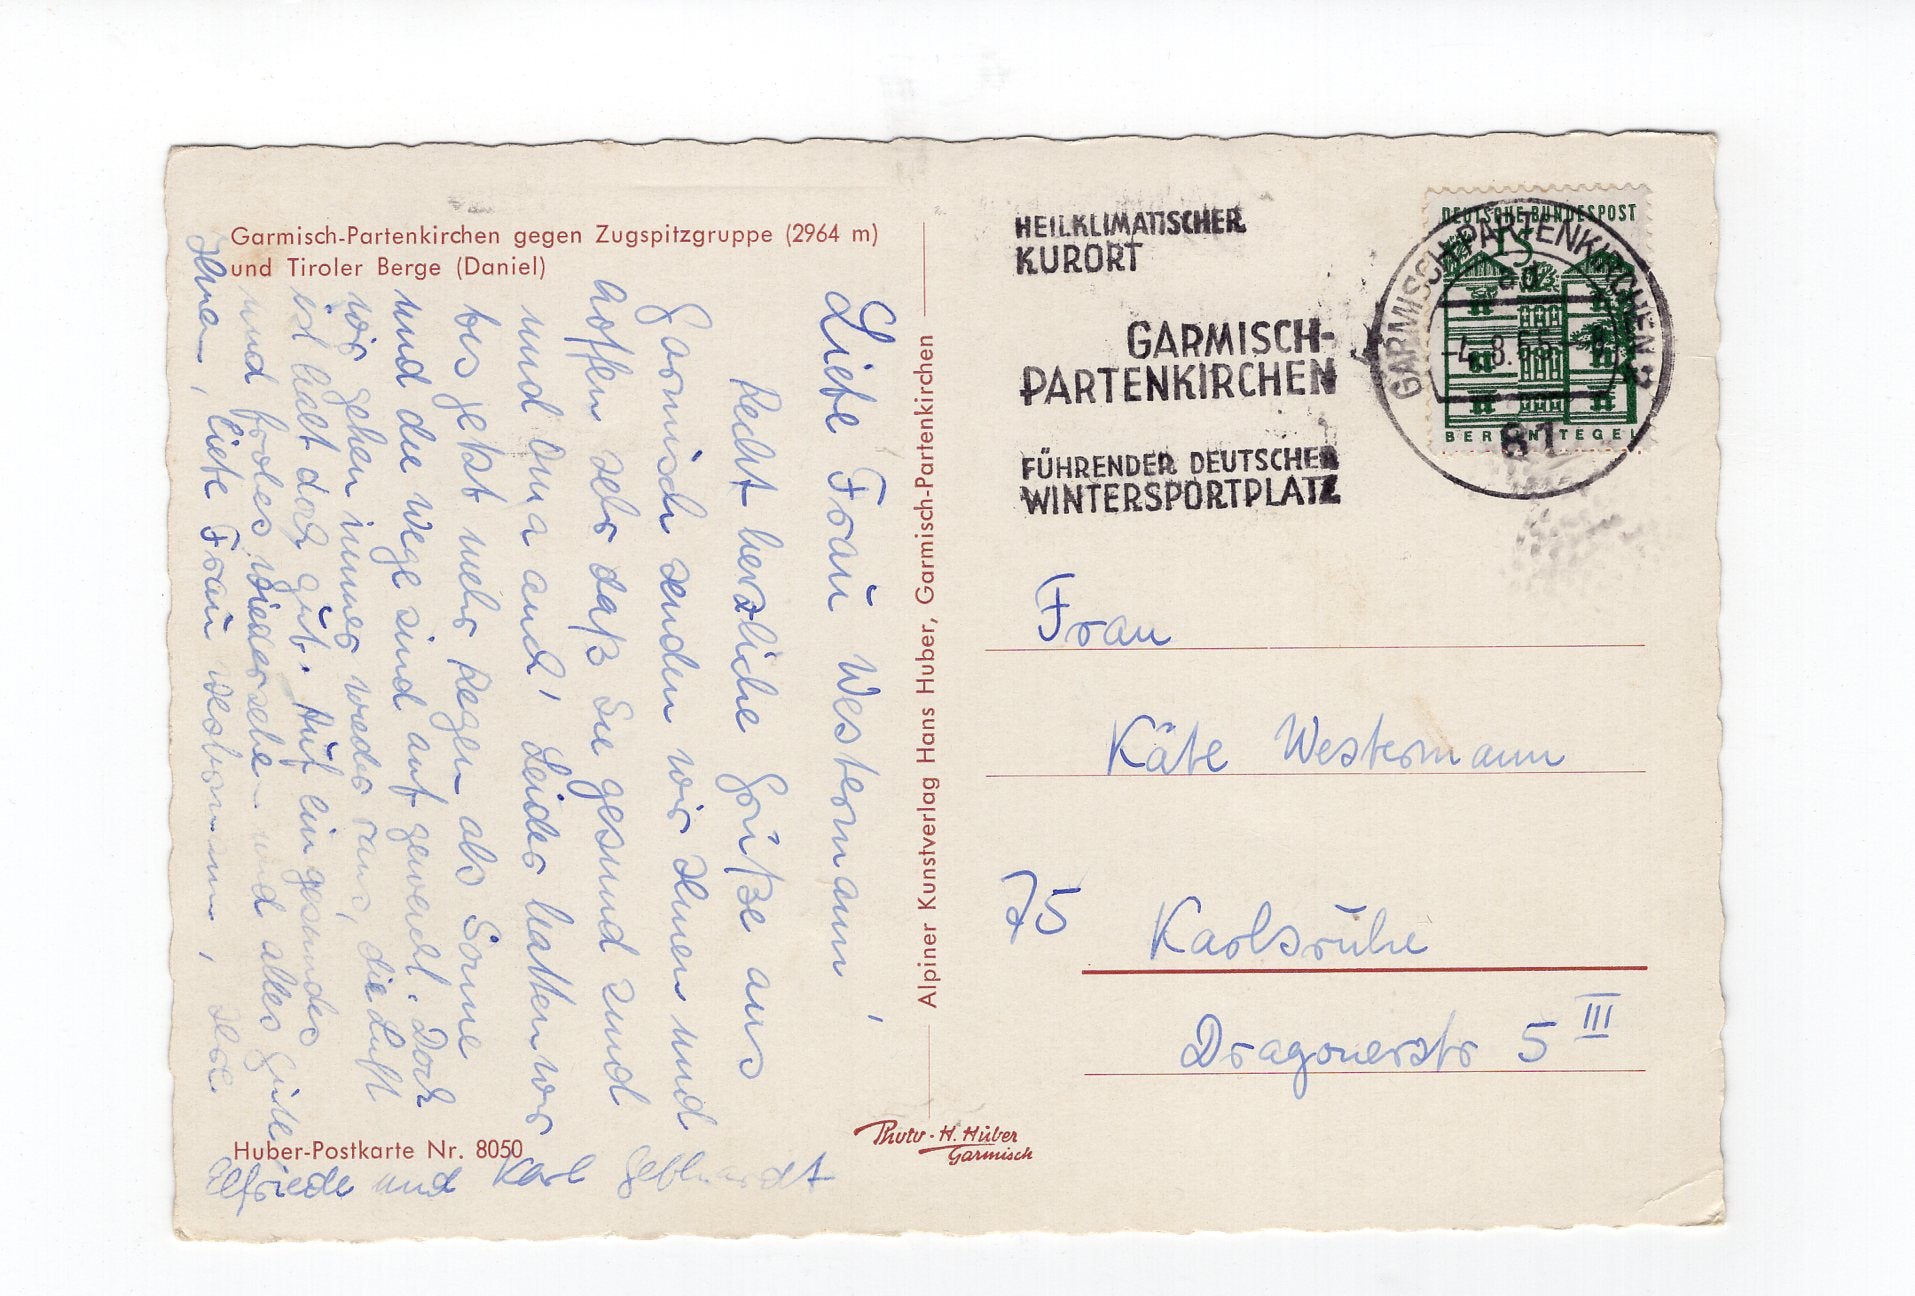 Garmisch-Partenkirchen gegen Zugspitzgruppe (2964 m)
und Tiroler Berge (Daniel)
Liebe Frau Westermann,
Recht herzliche Grüße aus
Garmisch senden wir Ihnen und
hoffen sehr daß Sie gesund sind
und Oma auch! Leider hatten wir
bis jetzt mehr Regen als Sonne
und die Wege sind aufgeweicht. Doch
wir gehen immer wieder raus, die Luft
ist halt doch gut. Auf ein gesundes
und frohes Wiedersehen und alles Gute
Ihnen, liebe Frau Westermann, Ihre
Elfriede und Karl Gebhardt
Huber-Postkarte Nr. 8050
Alpiner Kunstverlag Hans Huber, Garmisch-Partenkirchen
Photo-H. Huber
Garmisch
HEILKLIMATISCHER
KURORT
GARMISCH-
PARTENKIRCHEN
FÜHRENDER DEUTSCHER
WINTERSPORTPLATZ
DEUTSCHE BUNDESPOST
15
BERLIN TEGEL
GARMISCH-PARTENKIRCHEN 2
ad
-4.8.65-
81
Frau
Käte Westermann
75 Karlsruhe
Dragonerstr 5 III